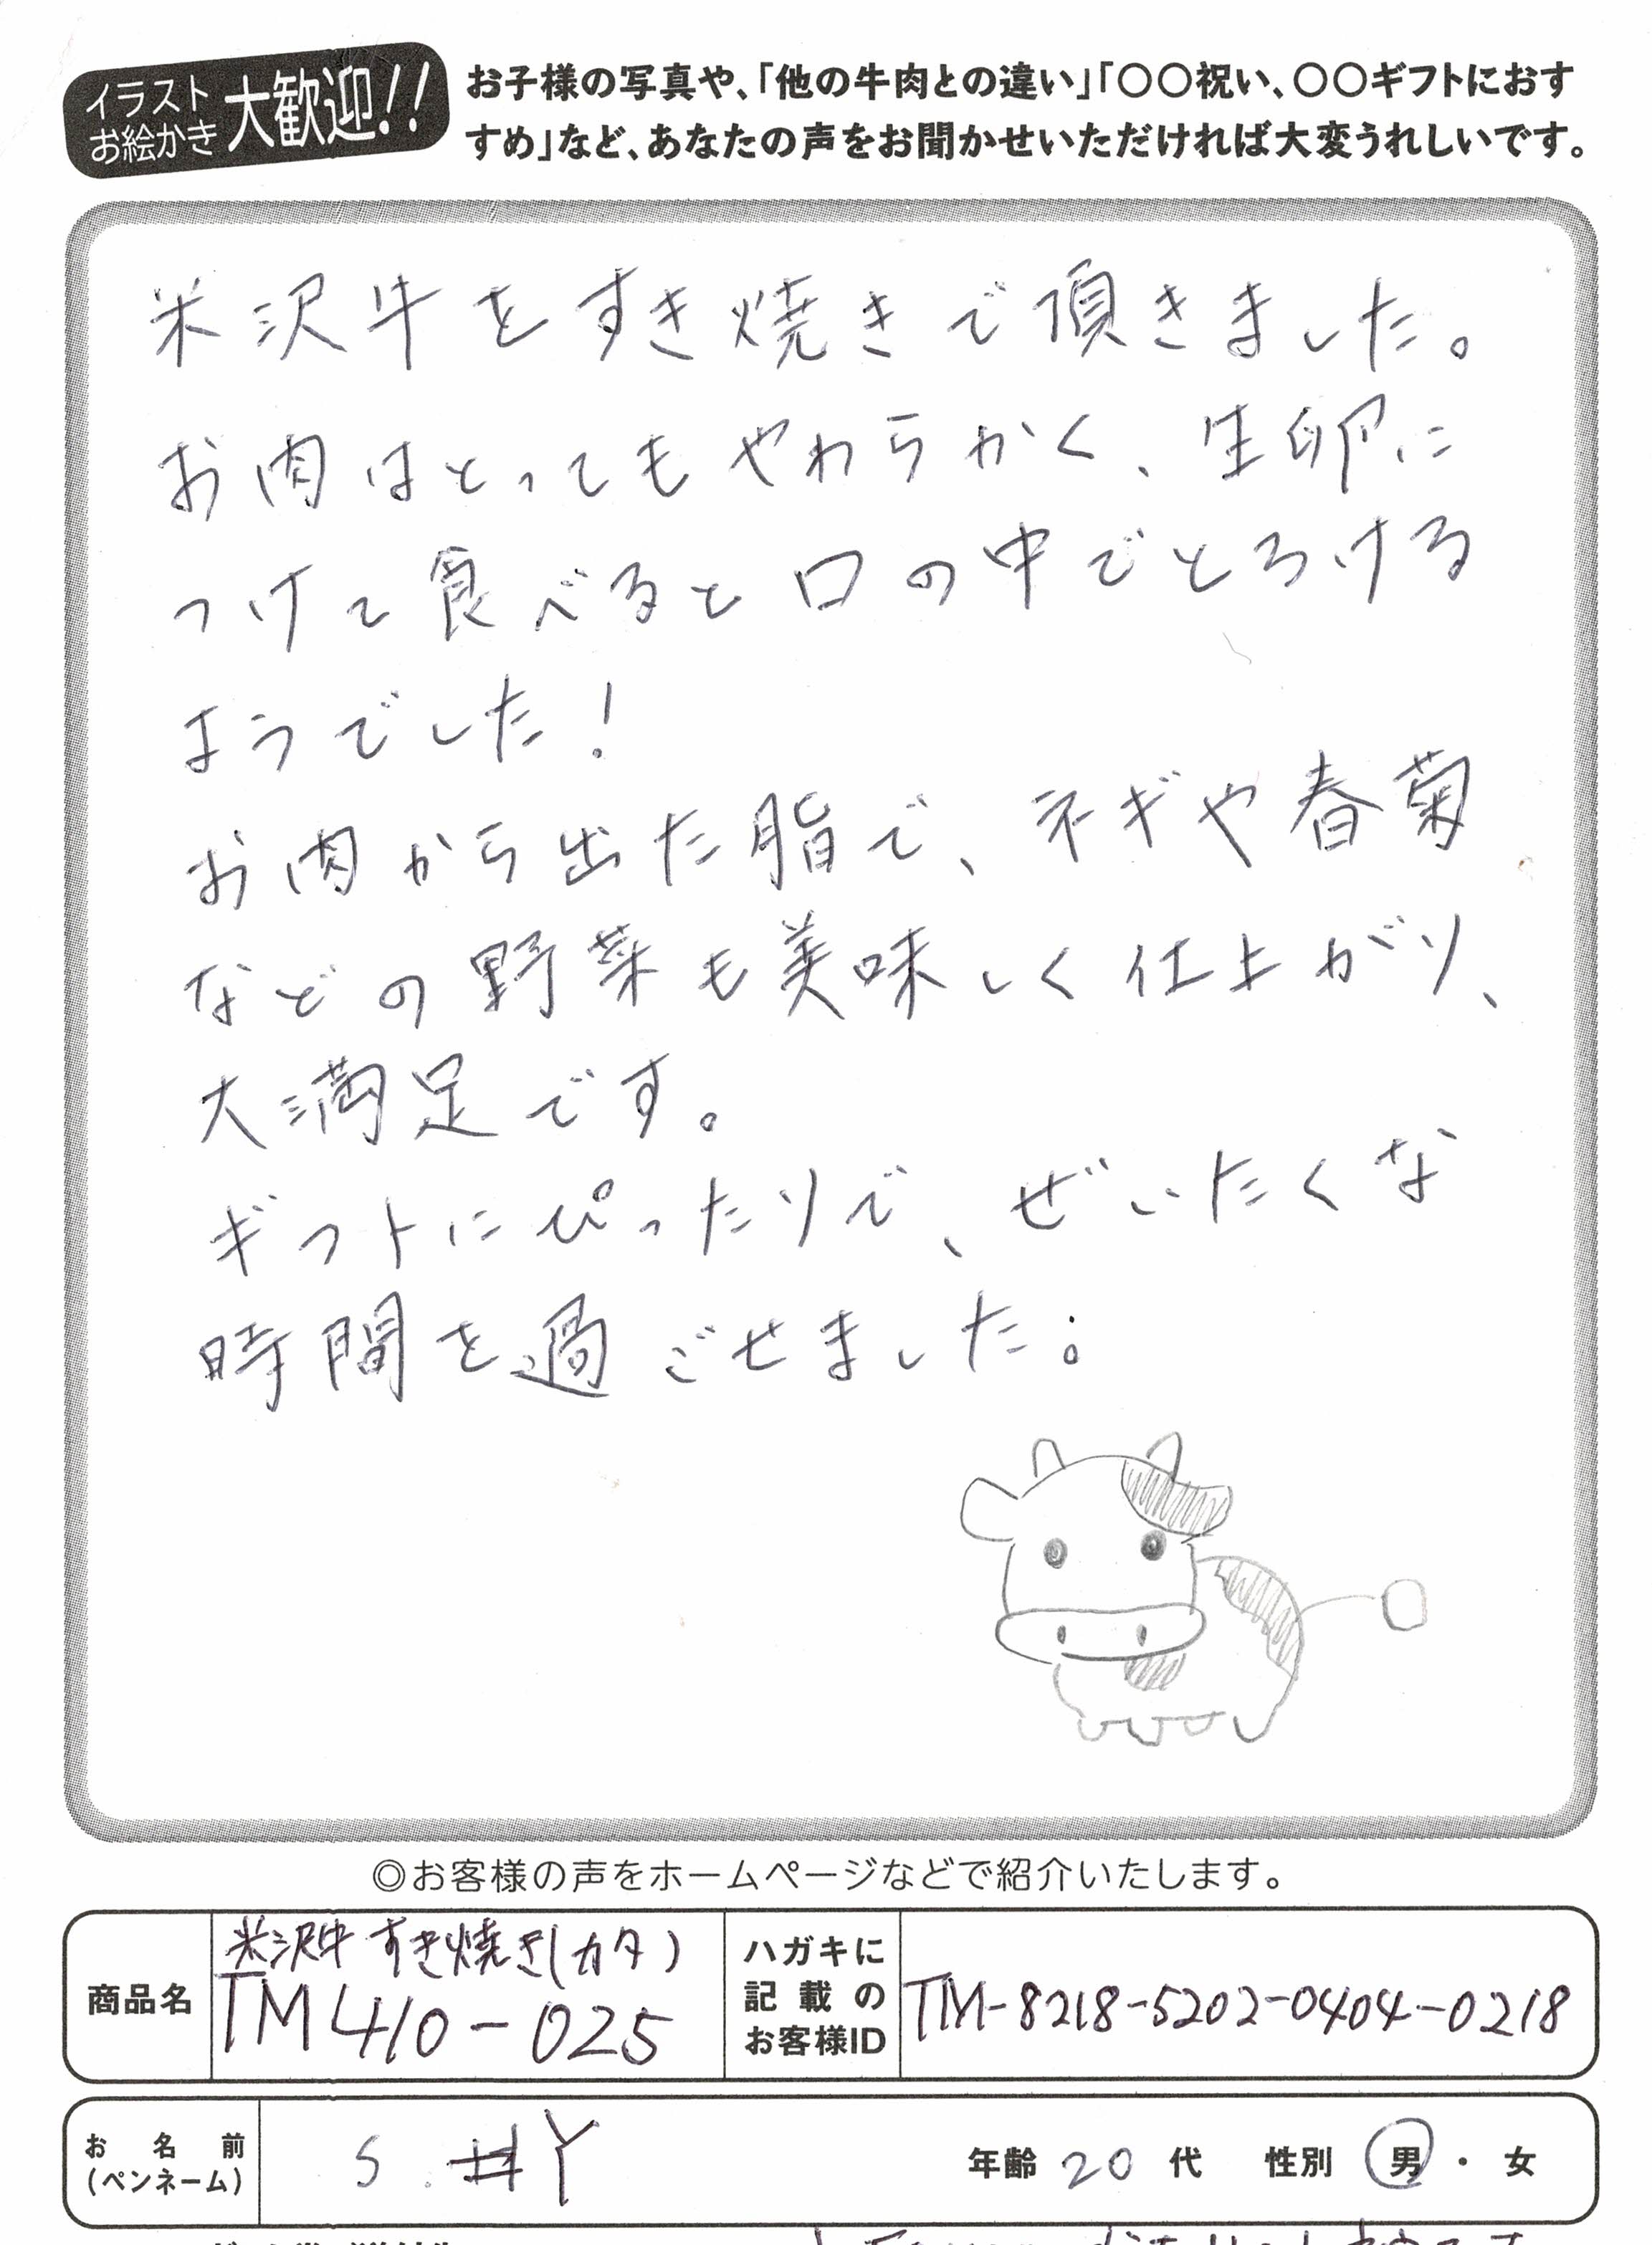 イラスト
お絵かき
大歓迎!!
お子様の写真や、「他の牛肉との違い」「〇〇祝い、〇〇ギフトにおす
すめ」など、あなたの声をお聞かせいただければ大変うれしいです。
米沢牛をすき焼きで頂きました。
お肉はとってもやわらかく、生卵に
つけて食べると口の中でとろける
ようでした！
お肉から出た脂で、ネギや春菊
などの野菜も美味しく仕上がり、
大満足です。
ギフトにぴったりで、ぜいたくな
時間を過ごせました。
◎お客様の声をホームページなどで紹介いたします。
商品名
米沢牛すき焼き(カタ)
TM410-025
ハガキに
記載の
お客様ID
TM-8218-5202-0404-0218
お名前
(ペンネーム)
S.
Y
年齢 20 代 性別 男・女